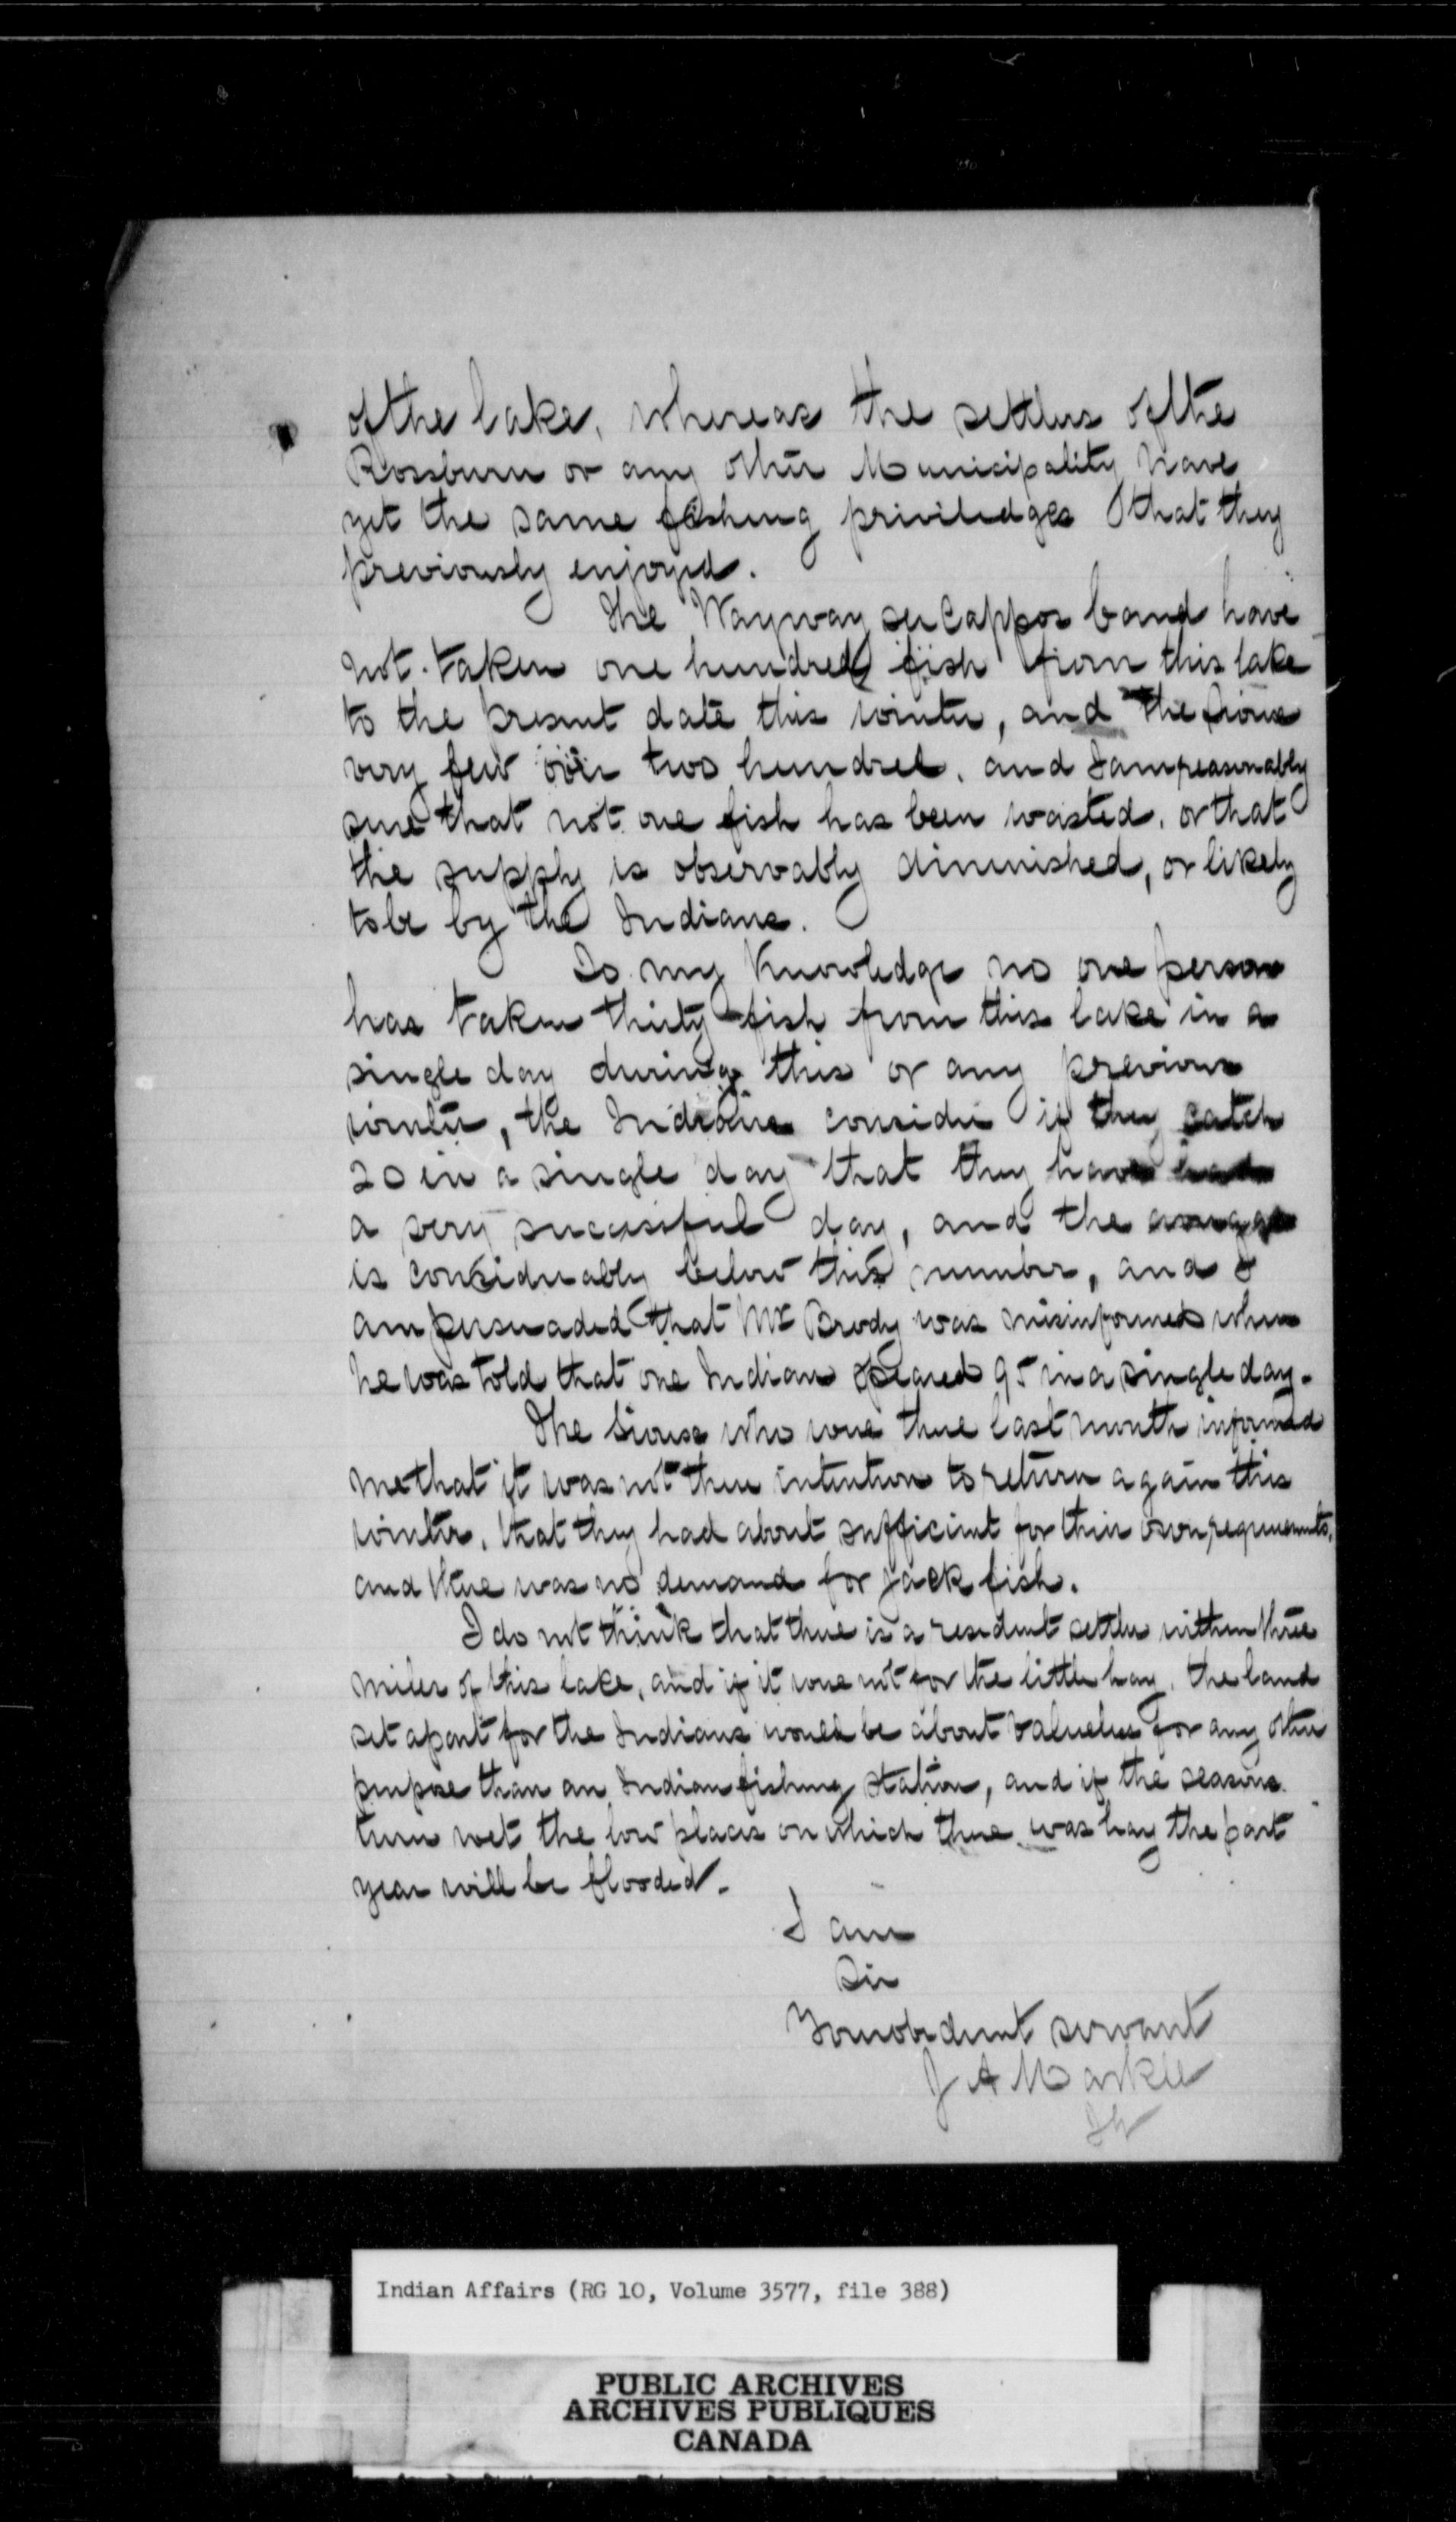 of the lake, whereas the settlers of the
Rossburn or any other Municipality have
yet the same fishing priviledges that they
previously enjoyed.
The Wayway see Cappo band have
not taken one hundred fish from this lake
to the present date this winter, and the Sioux
very few over two hundred, and I am reasonably
sure that not one fish has been wasted, or that
the supply is observably diminished, or likely
to be by the Indians.
To my knowledge no one person
has taken thirty fish from this lake in a
single day during this or any previous
winter, the Indians consider if they catch
20 in a single day that they have had
a very successful day, and the average
is considerably below this number, and I
am persuaded that Mr Brody was misinformed when
he was told that one Indian speared 95 in a single day.
The Sioux who were there last month informed
me that it was not their intention to return again this
winter, that they had about sufficient for their own requirements,
and there was no demand for jack fish.
I do not think that there is a resident settler within three
miles of this lake, and if it were not for the little hay, the land
set apart for the Indians would be about valueless for any other
purpose than an Indian fishing station, and if the seasons
turn wet the low places on which there was hay the past
year will be flooded.
I am
Sir
Your obedient servant
J A Markle
Indian Affairs (RG 10, Volume 3577, file 388)
PUBLIC ARCHIVES
ARCHIVES PUBLIQUES
CANADA